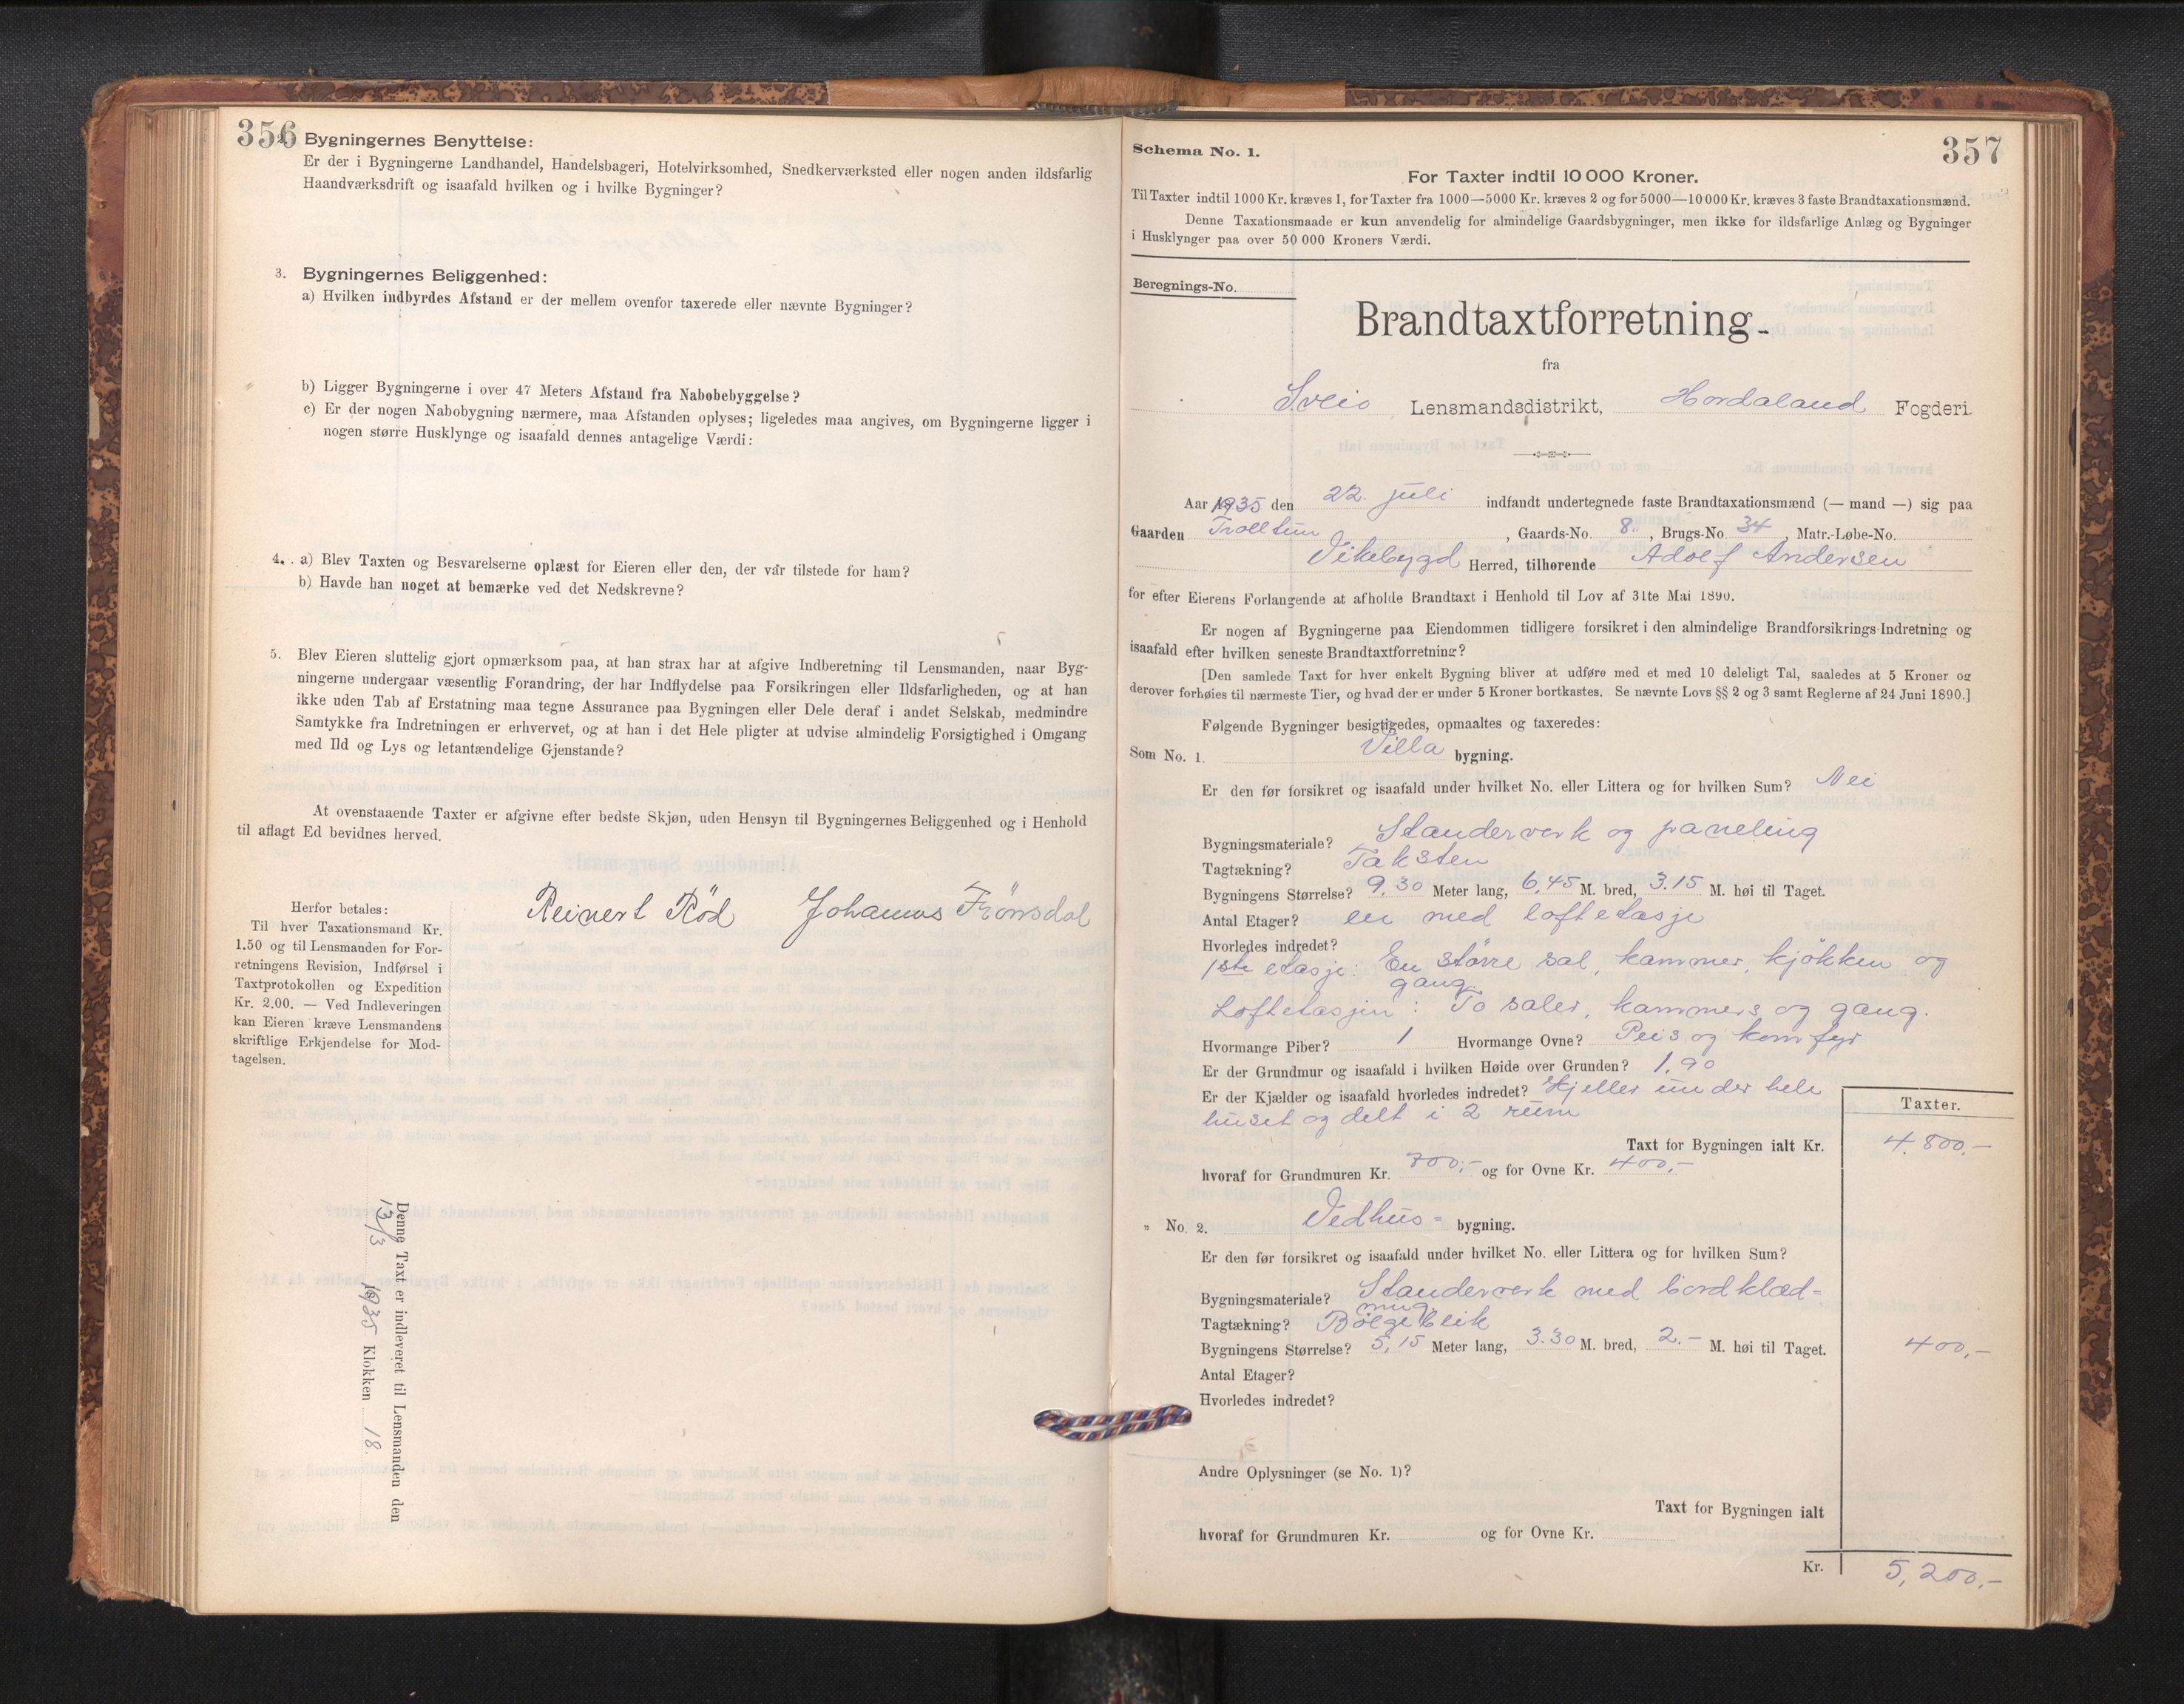 356
2. Bygningernes Benyttelse:
Er der i Bygningerne Landhandel, Handelsbageri, Hotelvirksomhed, Snedkerværksted eller nogen anden ildsfarlig
Haandværksdrift og isaafald hvilken og i hvilke Bygninger?
3. Bygningernes Beliggenhed:
a) Hvilken indbyrdes Afstand er der mellem ovenfor taxerede eller nævnte Bygninger?
b) Ligger Bygningerne i over 47 Meters Afstand fra Nabobebyggelse?
c) Er der nogen Nabobygning nærmere, maa Afstanden oplyses; ligeledes maa angives, om Bygningerne ligger i
nogen større Husklynge og isaafald dennes antagelige Værdi:
4. a) Blev Taxten og Besvarelserne oplæst for Eieren eller den, der var tilstede for ham?
b) Havde han noget at bemærke ved det Nedskrevne?
5. Blev Eieren sluttelig gjort opmærksom paa, at han strax har at afgive Indberetning til Lensmanden, naar Byg-
ningerne undergaar væsentlig Forandring, der har Indflydelse paa Forsikringen eller Ildsfarligheden, og at han
ikke uden Tab af Erstatning maa tegne Assurance paa Bygningen eller Dele deraf i andet Selskab, medmindre
Samtykke fra Indretningen er erhvervet, og at han i det Hele pligter at udvise almindelig Forsigtighed i Omgang
med Ild og Lys og letantændelige Gjenstande?
At ovenstaaende Taxter er afgivne efter bedste Skjøn, uden Hensyn til Bygningernes Beliggenhed og i Henhold
til aflagt Ed bevidnes herved.
Reinert Röd Johannes Frönsdal
Herfor betales:
Til hver Taxationsmand Kr.
1.50 og til Lensmanden for For-
retningens Revision, Indførsel i
Taxtprotokollen og Expedition
Kr. 2.00. — Ved Indleveringen
kan Eieren kræve Lensmandens
skriftlige Erkjendelse for Mod-
tagelsen.
Denne Taxt er indleveret til Lensmanden den
13/3 1935 Klokken 18.
357
Schema No. 1.
For Taxter indtil 10 000 Kroner.
Til Taxter indtil 1000 Kr. kræves 1, for Taxter fra 1000—5000 Kr. kræves 2 og for 5000—10 000 Kr. kræves 3 faste Brandtaxationsmænd.
Denne Taxationsmaade er kun anvendelig for almindelige Gaardsbygninger, men ikke for ildsfarlige Anlæg og Bygninger
i Husklynger paa over 50 000 Kroners Værdi.
Beregnings-No.
Brandtaxtforretning
fra
Sveio Lensmandsdistrikt, Hordaland Fogderi.
Aar 1935 den 22. juli indfandt undertegnede faste Brandtaxationsmænd (— mand —) sig paa
Gaarden Trolltun, Gaards-No. 8, Brugs-No. 34, Matr.-Løbe-No.
Vikebygd Herred, tilhørende Adolf Andersen
for efter Eierens Forlangende at afholde Brandtaxt i Henhold til Lov af 31te Mai 1890.
Er nogen af Bygningerne paa Eiendommen tidligere forsikret i den almindelige Brandforsikrings-Indretning og
isaafald efter hvilken seneste Brandtaxtforretning?
[Den samlede Taxt for hver enkelt Bygning bliver at udføre med et med 10 deleligt Tal, saaledes at 5 Kroner og
derover forhøies til nærmeste Tier, og hvad der er under 5 Kroner bortkastes. Se nævnte Lovs §§ 2 og 3 samt Reglerne af 24 Juni 1890.]
Følgende Bygninger besigtigedes, opmaaltes og taxeredes:
Som No. 1. Villa bygning.
Er den før forsikret og isaafald under hvilket No. eller Littera og for hvilken Sum? Nei
Bygningsmateriale? Standerverk og paneling
Tagtækning? Taksten
Bygningens Størrelse? 9,30 Meter lang, 6,45 M. bred, 3.15 M. høi til Taget.
Antal Etager? en med loftetasje
Hvorledes indredet?
1ste etasje: En större sal, kammer, kjökken og
gang.
Loftetasjen: To saler, kammers og gang.
Hvormange Piber? 1 Hvormange Ovne? Peis og komfyr
Er der Grundmur og isaafald i hvilken Høide over Grunden? 1,90
Er der Kjælder og isaafald hvorledes indredet? Kjeller under hele
huset og delt i 2 rum
Taxter.
Taxt for Bygningen ialt Kr. 4.800,-
hvoraf for Grundmuren Kr. 700,- og for Ovne Kr. 400,-
„ No. 2. Vedhus- bygning.
Er den før forsikret og isaafald under hvilket No. eller Littera og for hvilken Sum?
Bygningsmateriale? Standerverk med bordklæd-
ning
Tagtækning? Bölgeblik
Bygningens Størrelse? 5,15 Meter lang, 3.30 M. bred, 2.- M. høi til Taget. 400,-
Antal Etager?
Hvorledes indredet?
Andre Oplysninger (se No. 1)?
Taxt for Bygningen ialt
hvoraf for Grundmuren Kr. og for Ovne Kr.
Kr. 5,200,-